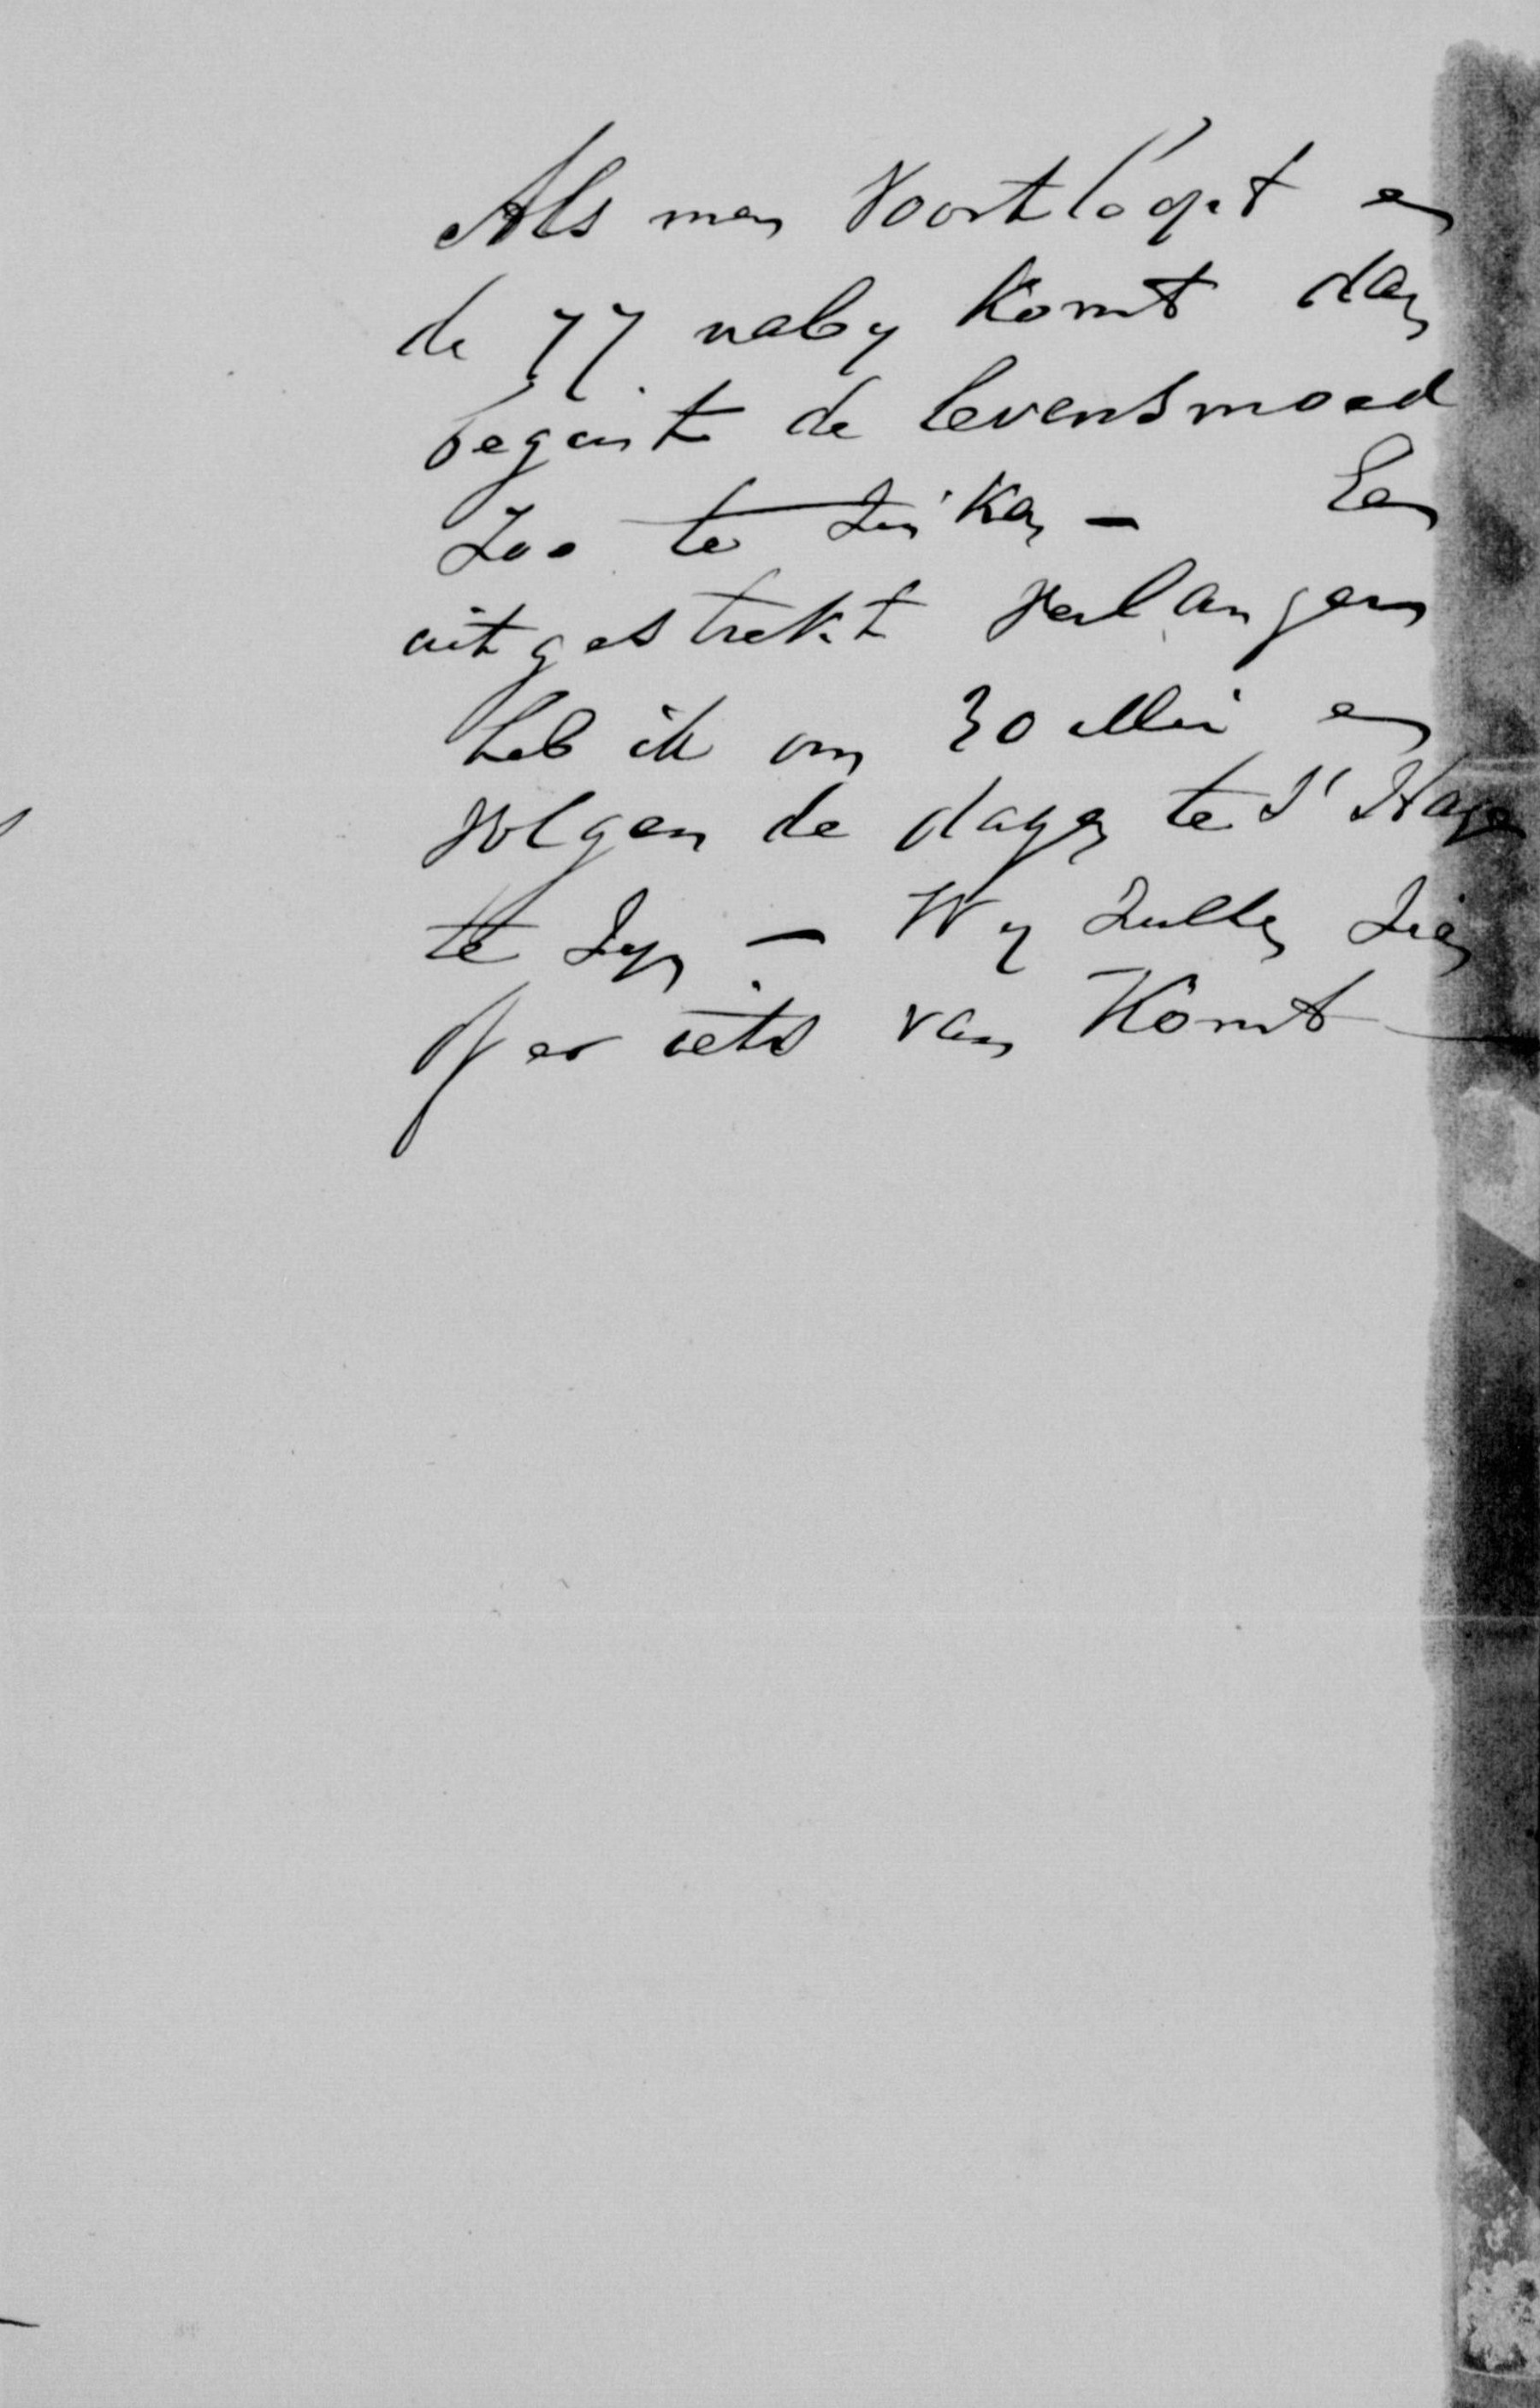 Als men voortloopt en
de 77 naby komt dan
begint de levensmoed
zoo te zinken – Een
uitgestrekt verlangen
heb ik om 30 Mei en
volgende dagen te s' Hage
te zyn – Wy zullen zien
of er iets van komt –